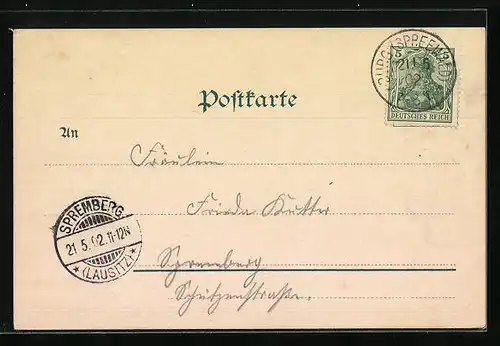 BURG (SPREEWALD)
21 5
02
DEUTSCHES REICH
Postkarte
An
Fräulein
Frieda Kutter
SPREMBERG
21.5.02.11-12N
*(LAUSITZ)*
Spremberg
Schützenstraße.